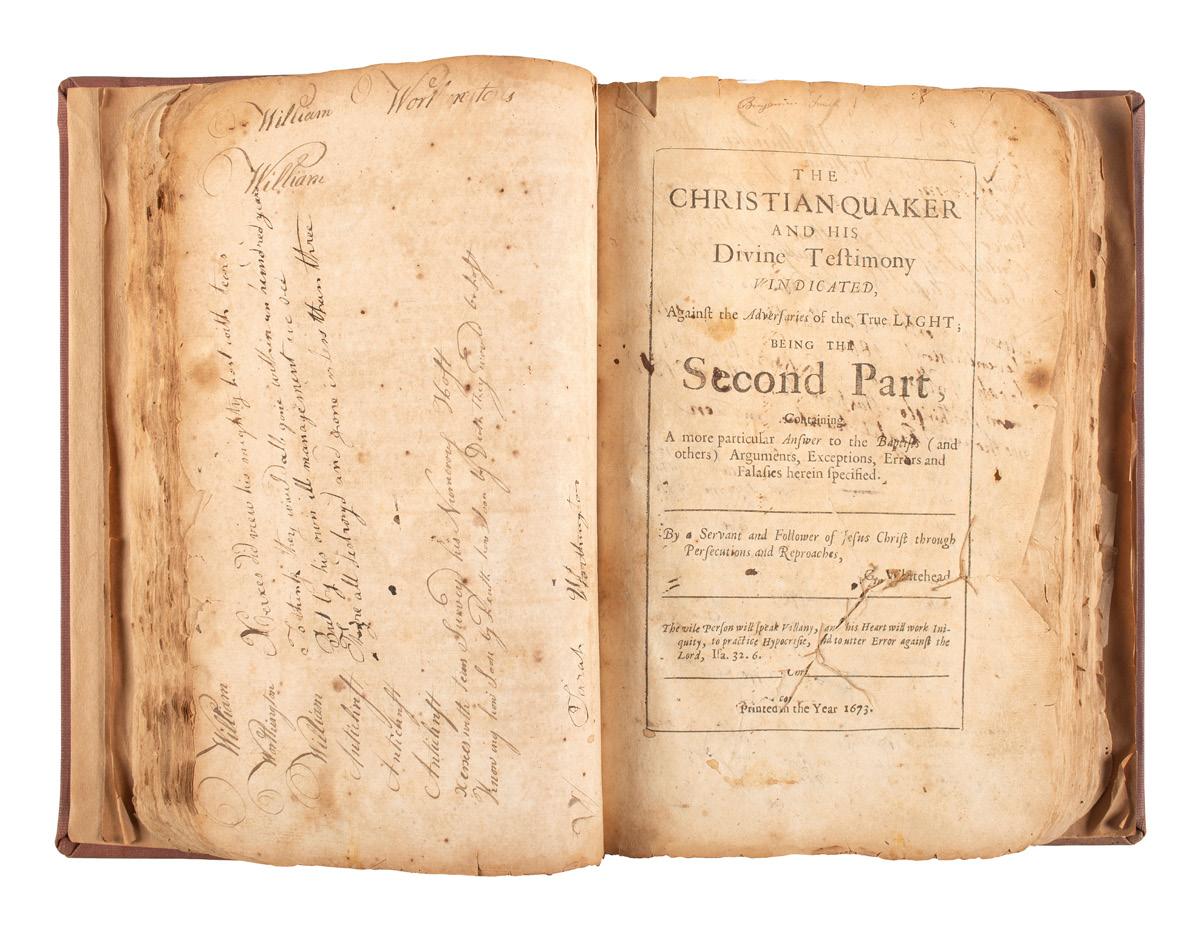 William Worthingtons
William
William
Worthington
William
Antichrist
Antichrist
Antichrist
Xerxes did view his mighty host with tears
To think they would all gone within an hundred year
But by his own ill management we see
They're all destroyd and gone in less than three
Xerxes with tears Survey'd his Numerous Host
Knowing how soon by Death they would be lost
Sarah Worthington
W
Benjamin Smith
THE
CHRISTIAN QUAKER
AND HIS
Divine Teſtimony
VINDICATED,
Againſt the Adverſaries of the True LIGHT;
BEING THE
Second Part,
Containing
A more particular Anſwer to the Baptiſts (and
others) Arguments, Exceptions, Errors and
Falaſies herein ſpecified.
By a Servant and Follower of Jeſus Chriſt through
Perſecutions and Reproaches,
Geo. Whitehead
The vile Perſon will ſpeak Villany, and his Heart will work Ini-
quity, to practice Hypocriſie, and to utter Error againſt the
Lord, Iſa. 32. 6.
Printed in the Year 1673.